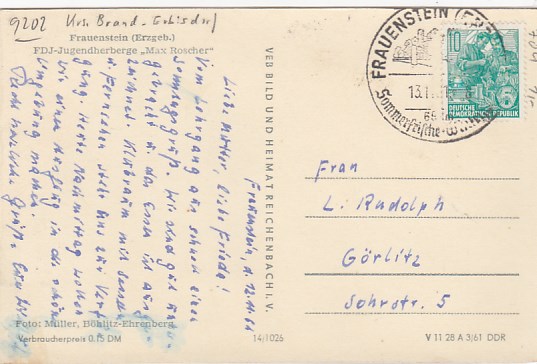 9202 Krs. Brand-Erbisdorf
Frauenstein (Erzgeb.)
FDJ-Jugendherberge „Max Roscher"
Frauenstein, d. 12.11.61
Liebe Mutter, liebe Friedel!
Vom Lehrgang aus schnell einen
Sonntagsgruß. Wir sind gut unter-
gebracht u. das Essen ist ausge-
zeichnet. Klubraum mit
u. Fernsehen steht uns zur Verfü-
gung. Heute Nachmittag wollen
wir einen Ausflug in die schöne
Umgebung machen.
Recht herzliche Grüße Euer
Foto: Müller, Böhlitz-Ehrenberg
Verbraucherpreis 0,15 DM
14/1026
VEB BILD UND HEIMAT REICHENBACH I. V.
FRAUENSTEIN (ERZGEB)
13.11.61
Sommerfrische
10
DEUTSCHE
DEMOKRATISCHE REPUBLIK
Frau
L. Rudolph
Görlitz
Sohrstr. 5
V 11 28 A 3/61 DDR